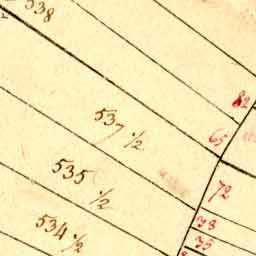 538
82
537 1/2
65
535 1/2
72
38
534 1/2
35